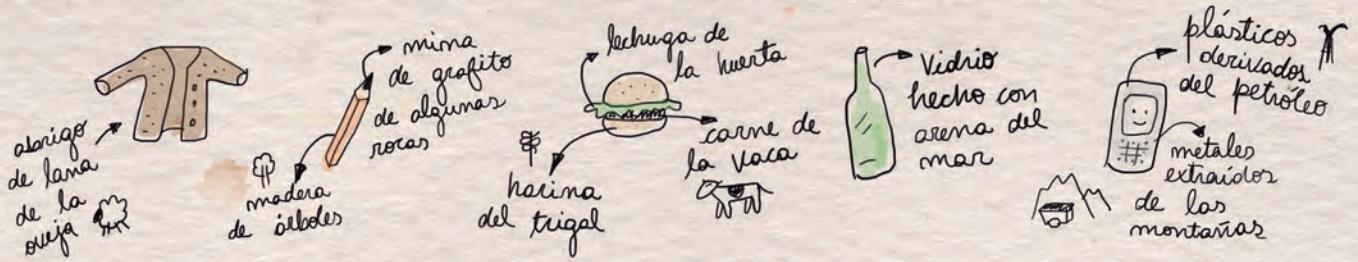 abrigo
de lana
de la
oveja
mina
de grafito
de algunas
rocas
madera
de árboles
lechuga de
la huerta
carne de
la vaca
harina
del trigal
Vidrio
hecho con
arena del
mar
plásticos
derivados
del petróleo
metales
extraídos
de las
montañas